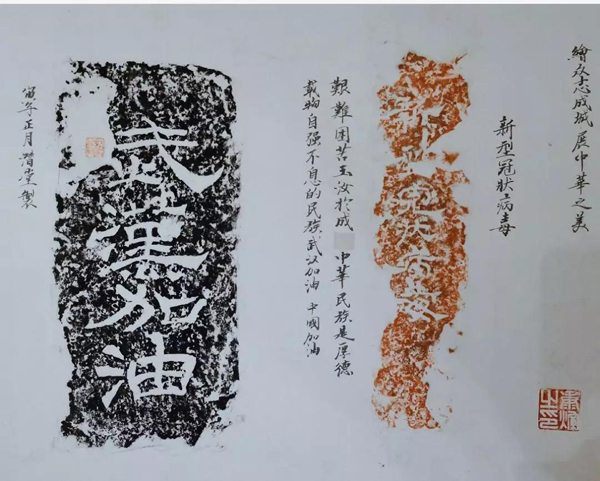 繪众志成城展中華之美
新型冠状病毒
艱難困苦玉汝於成 中華民族是厚德
載物自强不息的民族武汉加油 中國加油
武漢加油
正月堂製